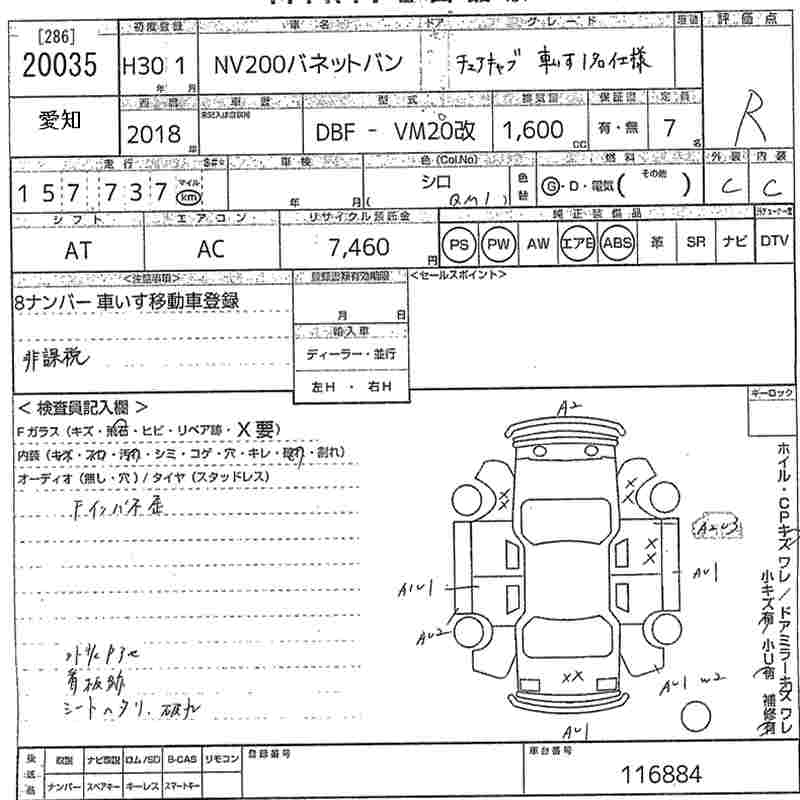 [286]
20035
初度登録
車名
ドア
グレード
評価点
H30 1
年 月
NV200バネットバン
チェアキャブ 車いす1名仕様
R
愛知
西暦
車歴
型式
排気量
保証書
定員
2018
年
DBF - VM20改
1,600
CC
有・無
7
名
走行
車検
色(Col.No)
燃料
外装
内装
157,737
マイル
km
年 月
シロ
(QM1)
色替
G・D・電気(その他)
C
C
シフト
エアコン
リサイクル預託金
純正装備品
AT
AC
7,460
円
PS PW AW エアB ABS 革 SR ナビ DTV
<注意事項>
登録書類有効期限
<セールスポイント>
8ナンバー 車いす移動車登録
月 日
非課税
輸入車
ディーラー・並行
左H ・ 右H
キーロック
< 検査員記入欄 >
Fガラス (キズ・飛石・ヒビ・リペア跡・X要)
内装 (キズ・スレ・汚れ・シミ・コゲ・穴・キレ・破れ・割れ)
オーディオ (無し・穴) / タイヤ (スタッドレス)
Fインパネ歪
看板跡
シートヘタリ、破れ
A2
X X
X X
A2U3
X X
A1U1
AU1
AU2
XX
AU1 W2
AU1
ホイル・CPキズ ワレ / ドアミラーキズ ワレ
小キズ有 / 小U有 補修有
後送品
取説 ナビ取説 ロム/SD B-CAS リモコン
ナンバー スペアキー キーレス スマートキー
登録番号
車台番号
116884